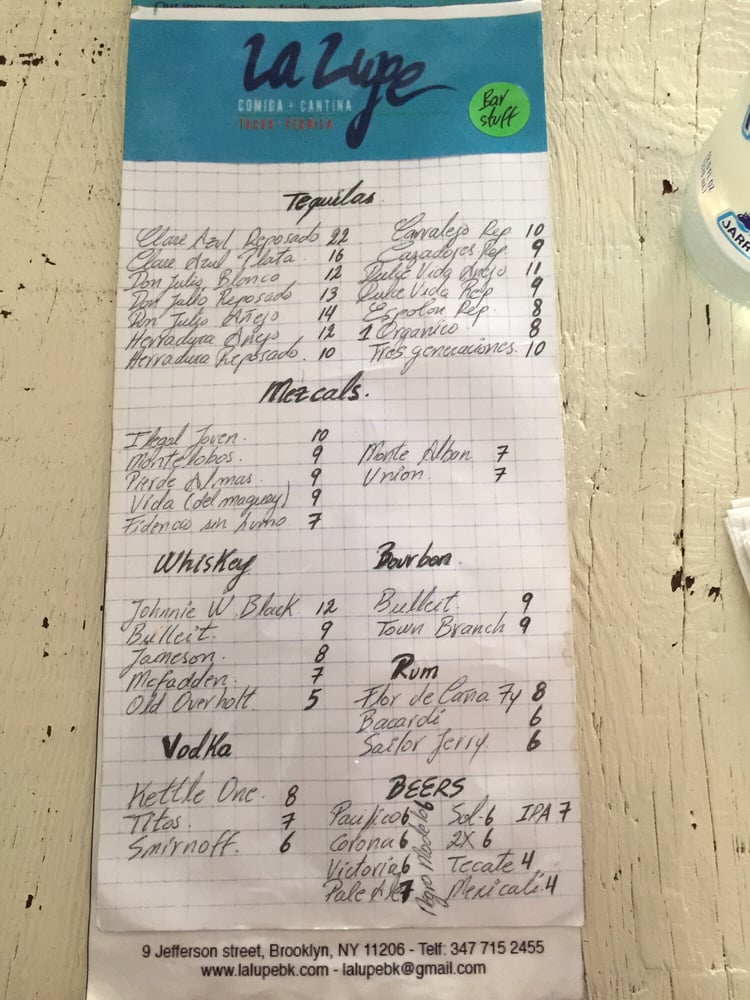 Our ingredients are fresh,
La Lupe
COMIDA + CANTINA
TACOS - TEQUILA
Bar stuff
Tequilas
Clase Azul Reposado 22
Clase Azul Plata 16
Don Julio Blanco 12
Don Julio Reposado 13
Don Julio Añejo 14
Herradura Añejo 12
Herradura Reposado. 10
Corralejo Rep 10
Cazadores Rep. 9
Dulce Vida Añejo 11
Dulce Vida Rep 9
Espolon Rep. 8
1 Organico 8
Tres generaciones. 10
Mezcals.
Ilegal Joven. 10
Montelobos. 9
Pierde Almas. 9
Vida (del maguey) 9
Fidencio sin humo 7
Monte Alban 7
Union. 7
Whiskey
Johnnie W. Black 12
Bulleit. 9
Jameson. 8
McFadden. 7
Old Overholt. 5
Bourbon.
Bulleit. 9
Town Branch 9
Rum
Flor de Caña 7y 8
Bacardi 6
Sailor Jerry. 6
Vodka
Kettle One. 8
Titos. 7
Smirnoff. 6
BEERS
Pacifico 6
Corona 6
Victoria 6
Pale Ale 7
Negro Modelo 6
Sol-6 IPA 7
2X 6
Tecate 4
Mexicali.4
9 Jefferson street, Brooklyn, NY 11206 - Telf: 347 715 2455
www.lalupebk.com - lalupebk@gmail.com
JARR